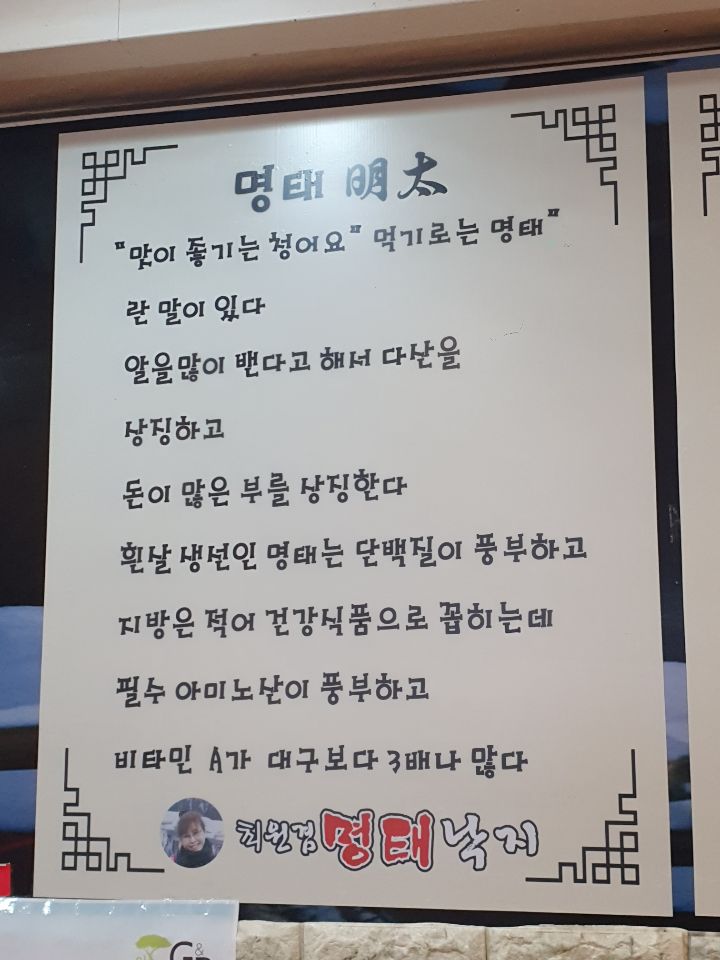 명태 明太
"맛이 좋기는 청어요" 먹기로는 명태"
란 말이 있다
알을많이 밴다고 해서 다산을
상징하고
돈이 많은 부를 상징한다
흰살 생선인 명태는 단백질이 풍부하고
지방은 적어 건강식품으로 꼽히는데
필수 아미노산이 풍부하고
비타민 A가 대구보다 3배나 많다
최원경 명태낙지